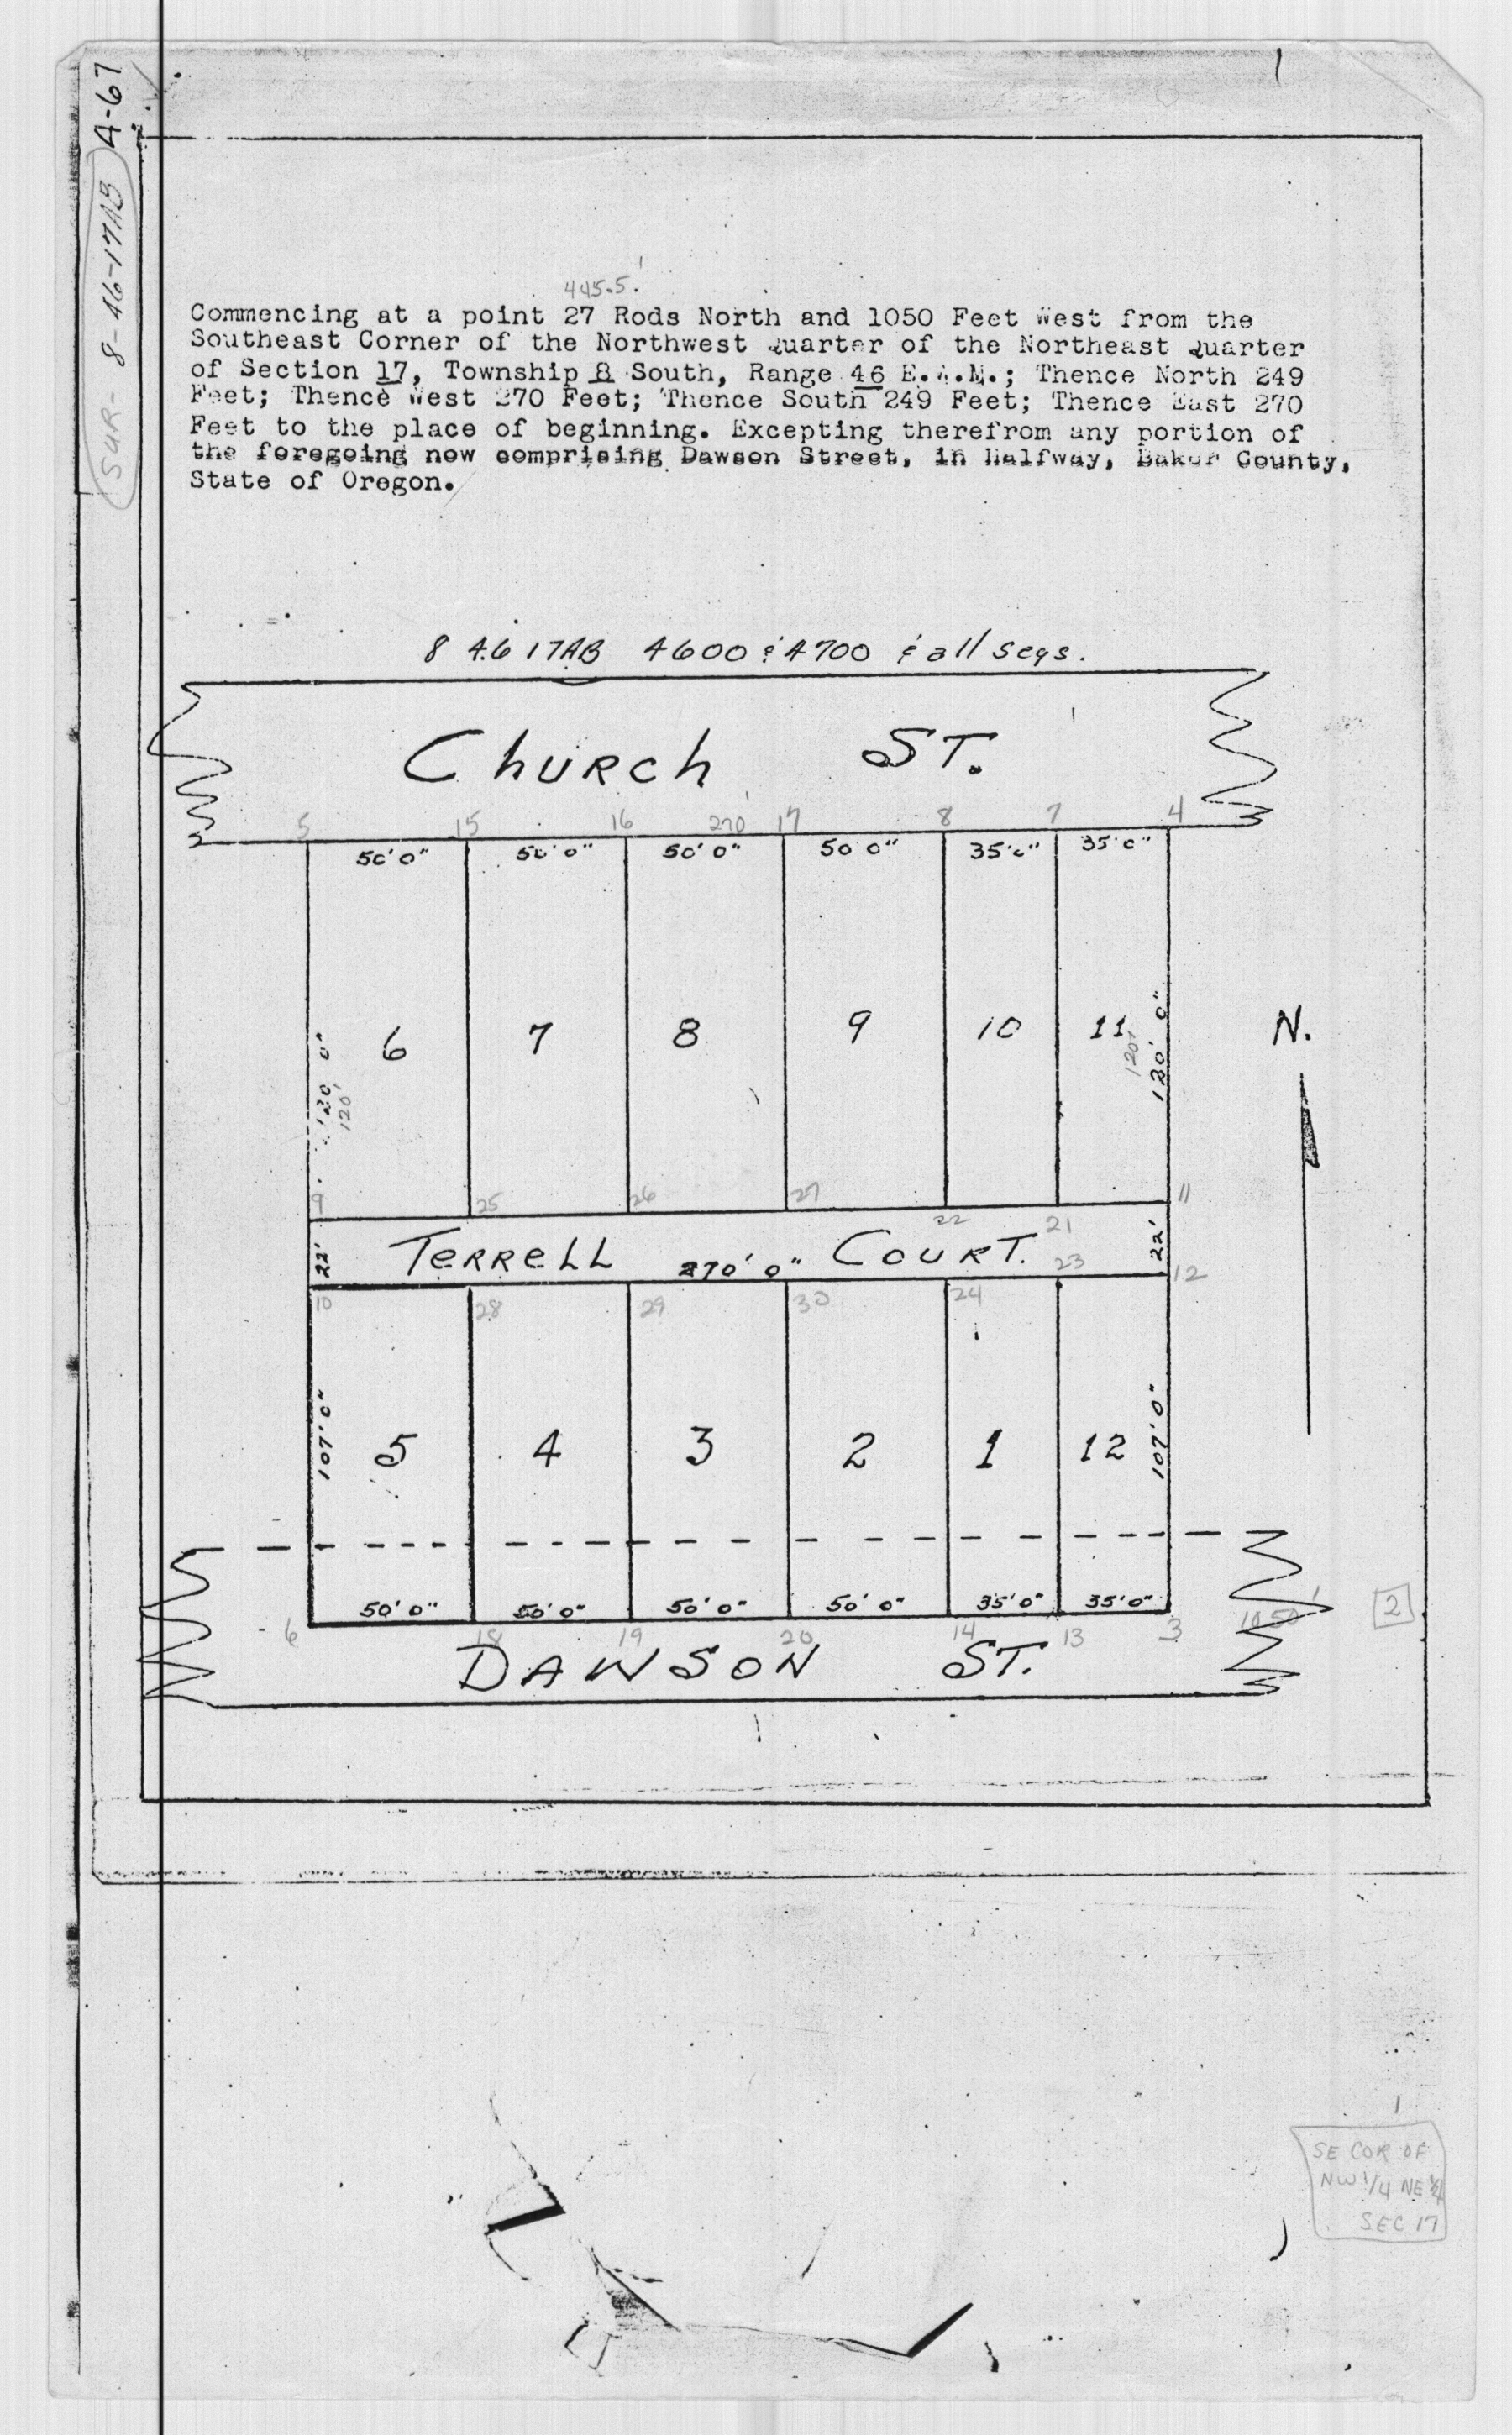 A-67
SUR- 8-46-17AB
445.5'
Commencing at a point 27 Rods North and 1050 Feet West from the
Southeast Corner of the Northwest Quarter of the Northeast Quarter
of Section 17, Township 8 South, Range 46 E.W.M.; Thence North 249
Feet; Thence West 270 Feet; Thence South 249 Feet; Thence East 270
Feet to the place of beginning. Excepting therefrom any portion of
the foregoing now comprising Dawson Street, in Halfway, Baker County,
State of Oregon.
8 46 17AB 4600 & 4700 & all segs.
Church ST.
5 15 16 270' 17 8 7 4
50'0" 50'0" 50'0" 50 0" 35'0" 35'0"
6 7 8 9 10 11
120 0" 120' 120' 120' 0"
N.
9 25 26 27 22 21 11
22' Terrell 270' 0" Court. 23 22'
12
10 28 29 30 24
107' 0" 107' 0"
5 4 3 2 1 12
50' 0" 50' 0" 50' 0" 50' 0" 35' 0" 35' 0"
1050'
2
6 18 19 20 14 13 3
DAWSON ST.
SE COR OF
NW 1/4 NE 1/4
SEC 17